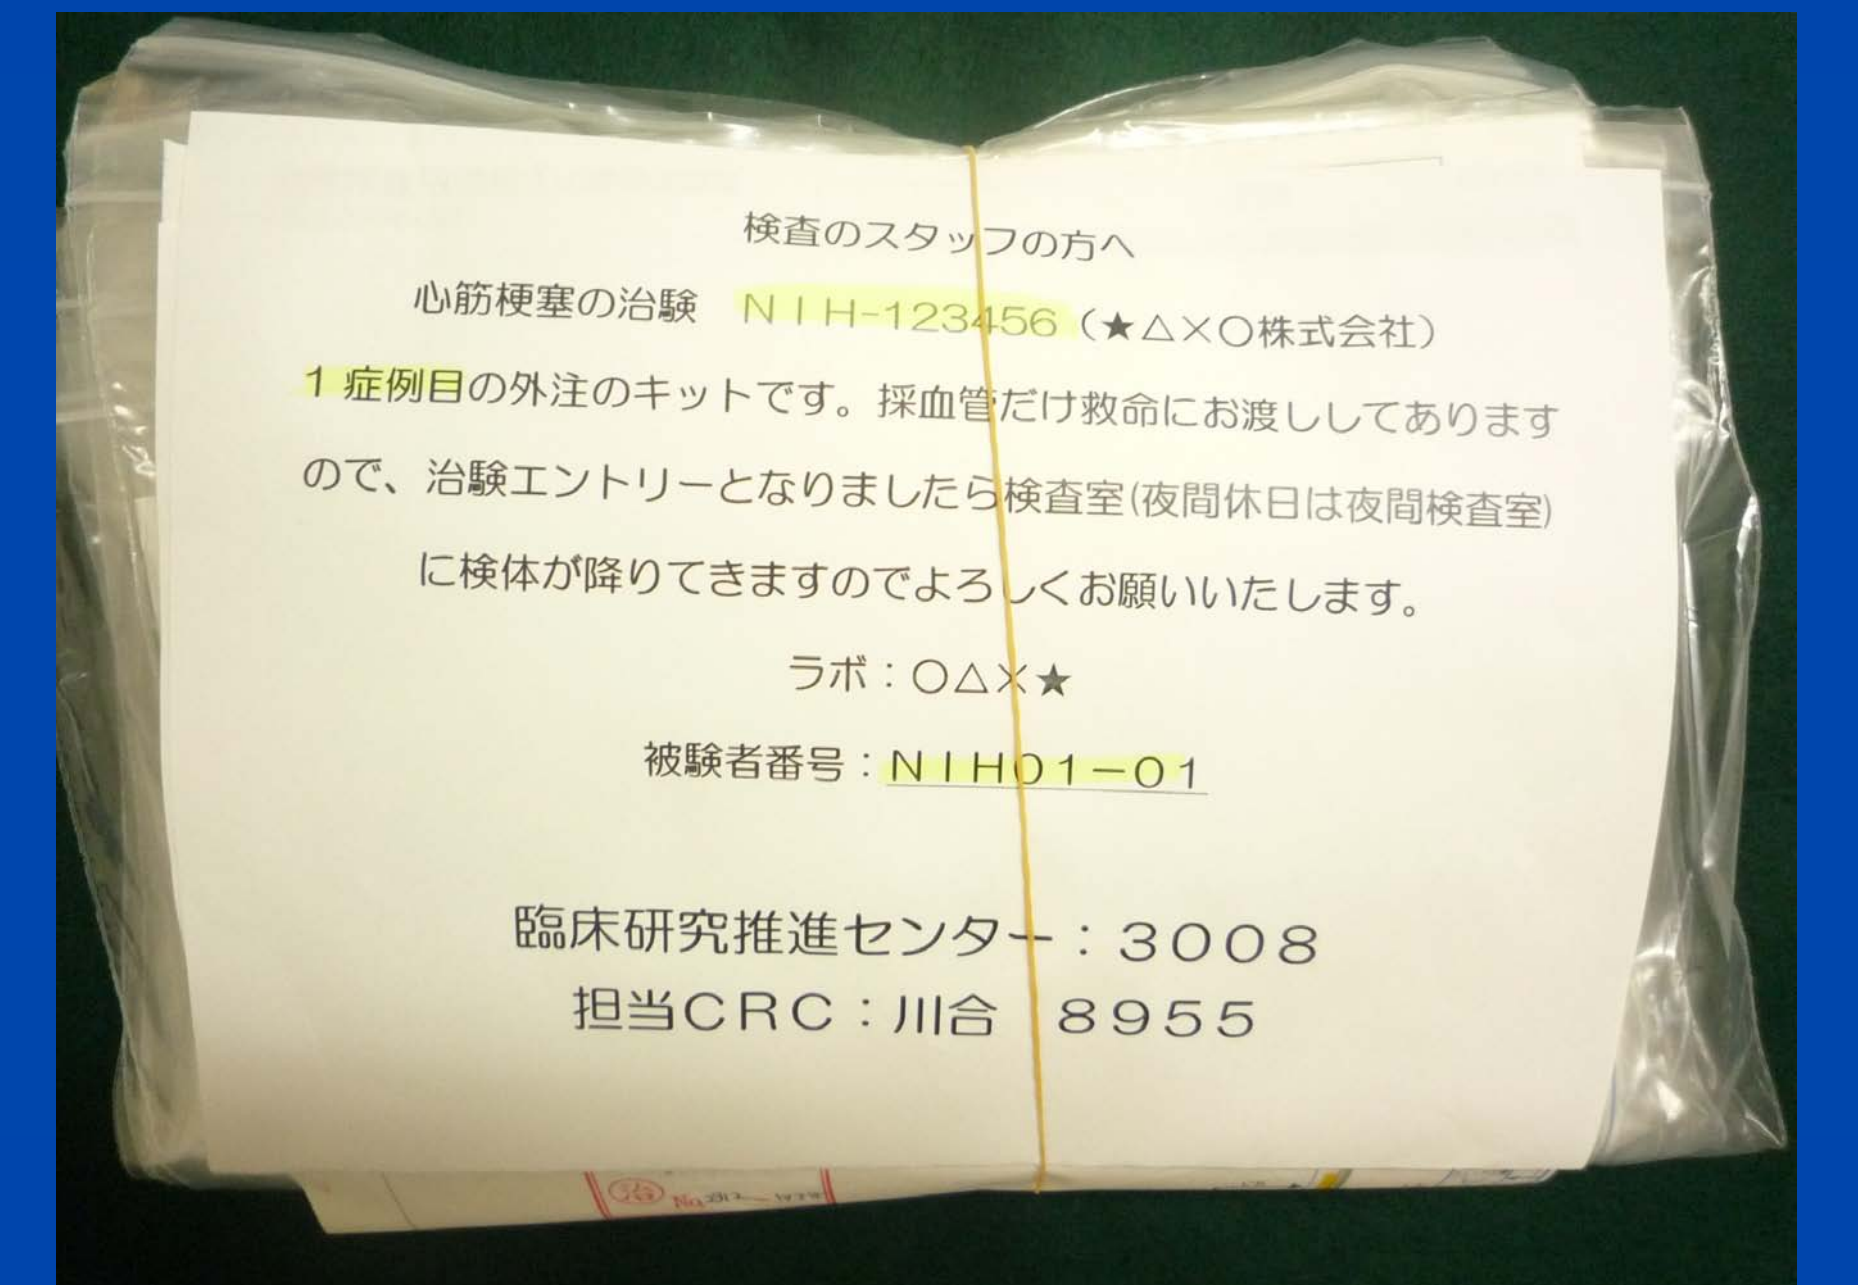 検査のスタッフの方へ
心筋梗塞の治験　ＮＩＨ-123456（★△×○株式会社）
1 症例目の外注のキットです。採血管だけ救命にお渡ししてあります
ので、治験エントリーとなりましたら検査室(夜間休日は夜間検査室)
に検体が降りてきますのでよろしくお願いいたします。
ラボ：○△×★
被験者番号：ＮＩＨ０１－０１
臨床研究推進センター：３００８
担当ＣＲＣ：川合　８９５５
治 No.